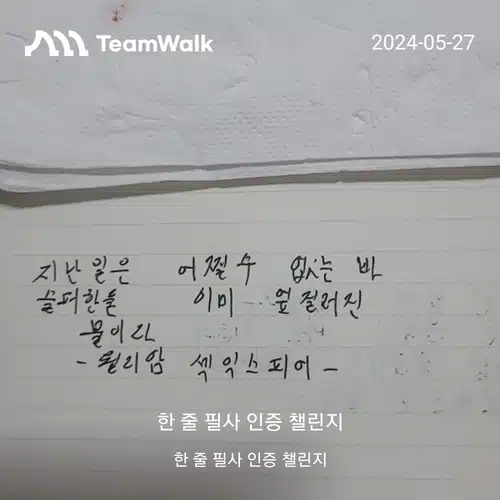 TeamWalk
2024-05-27
지난일은 어쩔수 없는 바
슬퍼한들 이미 엎절러진
물이라
- 윌리암 섹익스피어 -
한 줄 필사 인증 챌린지
한 줄 필사 인증 챌린지